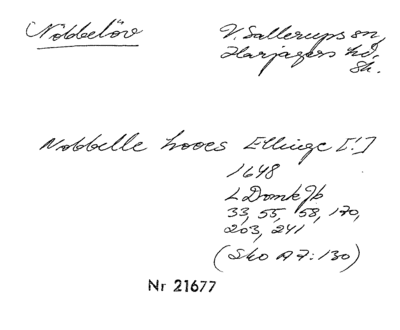 Nöbbelöv
V. Sallerups sn,
Harjagers hd,
Sk.
Nobbelle hooes Ellinge [!]
1648
LDomkJb
33, 55, 58, 170,
203, 241
(Sko A 7:130)
Nr 21677